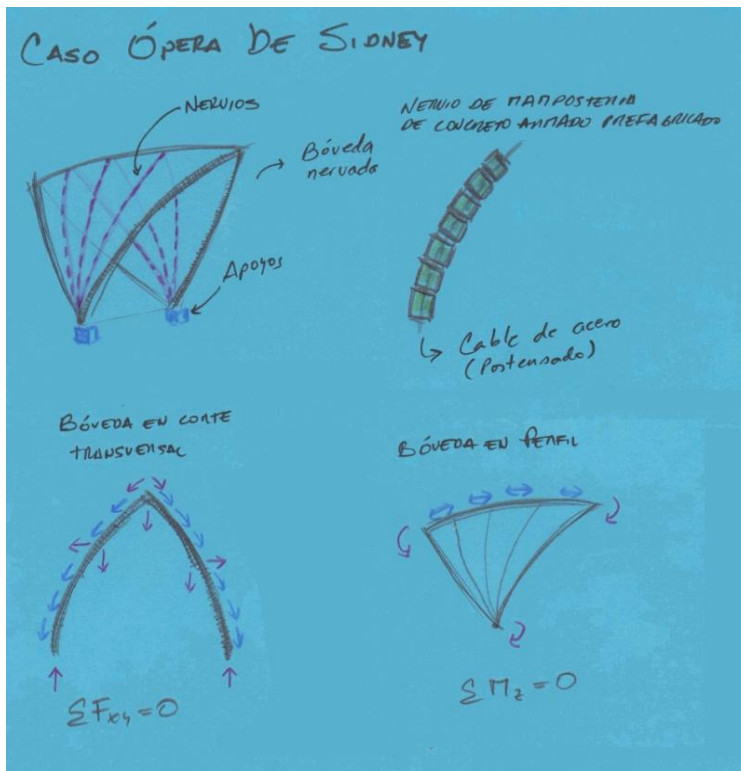 CASO ÓPERA DE SIDNEY
NERVIOS
Bóveda
nervada
APOYOS
NERVIO DE MAMPOSTERIA
DE CONCRETO ARMADO PREFABRICADO
Cable de acero
(Postensado)
BÓVEDA EN CORTE
TRANSVERSAL
ΣFxy=0
BÓVEDA EN PERFIL
ΣMz=0